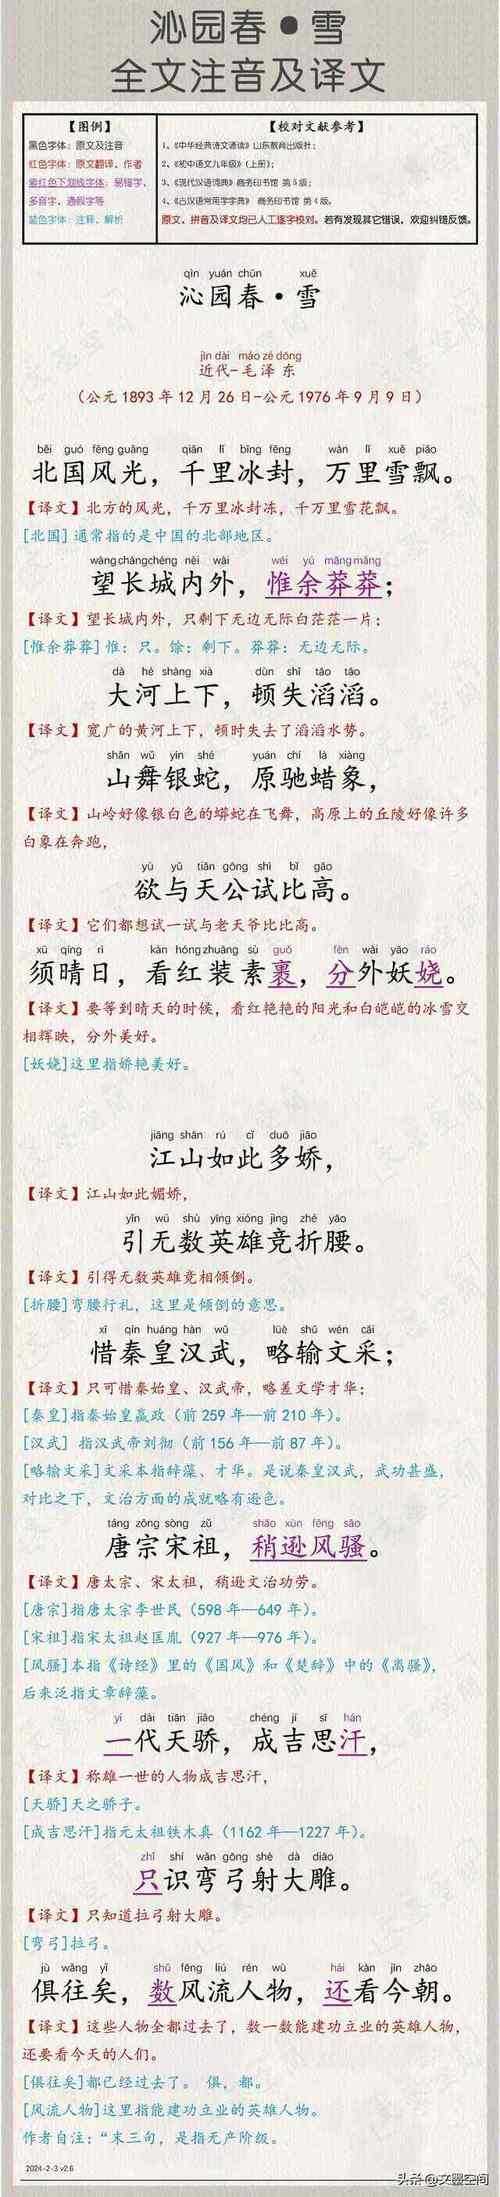 沁园春●雪
全文注音及译文
【图例】
黑色字体：原文及注音
红色字体：原文翻译、作者
紫红色下划线字体：易错字、
多音字、通假字等
蓝色字体：注释、解析
【校对文献参考】
1、《中华经典诗文诵读》山东教育出版社；
2、《初中语文九年级》（上册）；
3、《现代汉语词典》商务印书馆 第5版；
4、《古汉语常用字字典》 商务印书馆 第4版。
原文、拼音及译文均已人工逐字校对。若有发现其它错误，欢迎纠错反馈。
qìn yuán chūn xuě
沁园春·雪
jìn dài máo zé dōng
近代-毛泽东
（公元1893年12月26日-公元1976年9月9日）
běi guó fēng guāng qiān lǐ bīng fēng wàn lǐ xuě piāo
北国风光，千里冰封，万里雪飘。
【译文】北方的风光，千万里冰封冻，千万里雪花飘。
[北国] 通常指的是中国的北部地区。
wàng cháng chéng nèi wài wéi yú mǎng mǎng
望长城内外，惟余莽莽；
【译文】望长城内外，只剩下无边无际白茫茫一片；
[惟余莽莽] 惟：只。馀：剩下。莽莽：无边无际。
dà hé shàng xià dùn shī tāo tāo
大河上下，顿失滔滔。
【译文】宽广的黄河上下，顿时失去了滔滔水势。
shān wǔ yín shé yuán chí là xiàng
山舞银蛇，原驰蜡象，
【译文】山岭好像银白色的蟒蛇在飞舞，高原上的丘陵好像许多
白象在奔跑，
yù yǔ tiān gōng shì bǐ gāo
欲与天公试比高。
【译文】它们都想试一试与老天爷比比高。
xū qíng rì kàn hóng zhuāng sù guǒ fèn wài yāo ráo
须晴日，看红装素裹，分外妖娆。
【译文】要等到晴天的时候，看红艳艳的阳光和白皑皑的冰雪交
相辉映，分外美好。
[妖娆]这里指娇艳美好。
jiāng shān rú cǐ duō jiāo
江山如此多娇，
【译文】江山如此媚娇，
yǐn wú shù yīng xióng jìng zhé yāo
引无数英雄竞折腰。
【译文】引得无数英雄竞相倾倒。
[折腰]弯腰行礼，这里是倾倒的意思。
xī qín huáng hàn wǔ lüè shū wén cǎi
惜秦皇汉武，略输文采；
【译文】只可惜秦始皇、汉武帝，略差文学才华；
[秦皇]指秦始皇嬴政（前259年—前210年）。
[汉武] 指汉武帝刘彻（前156年—前87年）。
[略输文采]文采本指辞藻、才华。是说秦皇汉武，武功甚盛，
对比之下，文治方面的成就略有逊色。
táng zōng sòng zǔ shāo xùn fēng sāo
唐宗宋祖，稍逊风骚。
【译文】唐太宗、宋太祖，稍逊文治功劳。
[唐宗]指唐太宗李世民（598年—649年）。
[宋祖]指宋太祖赵匡胤（927年—976年）。
[风骚]本指《诗经》里的《国风》和《楚辞》中的《离骚》，
后来泛指文章辞藻。
yí dài tiān jiāo chéng jí sī hán
一代天骄，成吉思汗，
【译文】称雄一世的人物成吉思汗，
[天骄]天之骄子。
[成吉思汗]指元太祖铁木真（1162年—1227年）。
zhǐ shí wān gōng shè dà diāo
只识弯弓射大雕。
【译文】只知道拉弓射大雕。
[弯弓]拉弓。
jù wǎng yǐ shǔ fēng liú rén wù hái kàn jīn zhāo
俱往矣，数风流人物，还看今朝。
【译文】这些人物全都过去了，数一数能建功立业的英雄人物，
还要看今天的人们。
[俱往矣]都已经过去了。 俱，都。
[风流人物]这里指能建功立业的英雄人物。
作者自注：“末三句，是指无产阶级。
2024-2-3 v2.6
头条@文墨空间